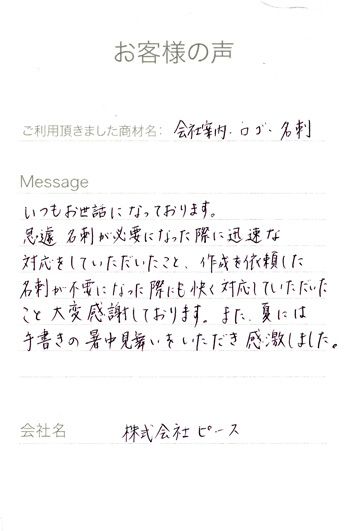 お客様の声
ご利用頂きました商材名： 会社案内・ロゴ・名刺
Message
いつもお世話になっております。
急遽 名刺が必要になった際に迅速な
対応をしていただいたこと、作成を依頼した
名刺が不要になった際にも快く対応していただいた
こと大変感謝しております。また、夏には
手書きの暑中見舞いをいただき感激しました。
会社名 株式会社ピース